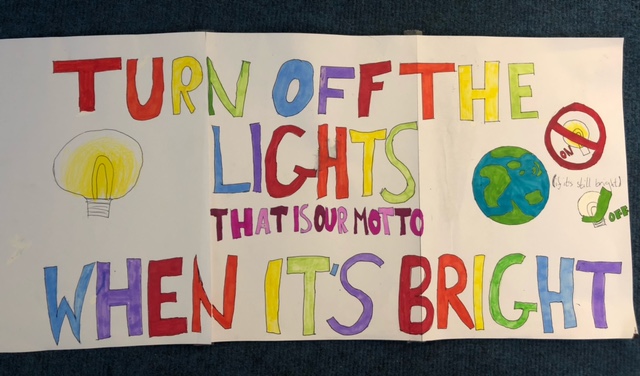 TURN OFF THE
LIGHTS
THAT IS OUR MOTTO
WHEN IT'S BRIGHT
ON
(if its still bright)
OFF